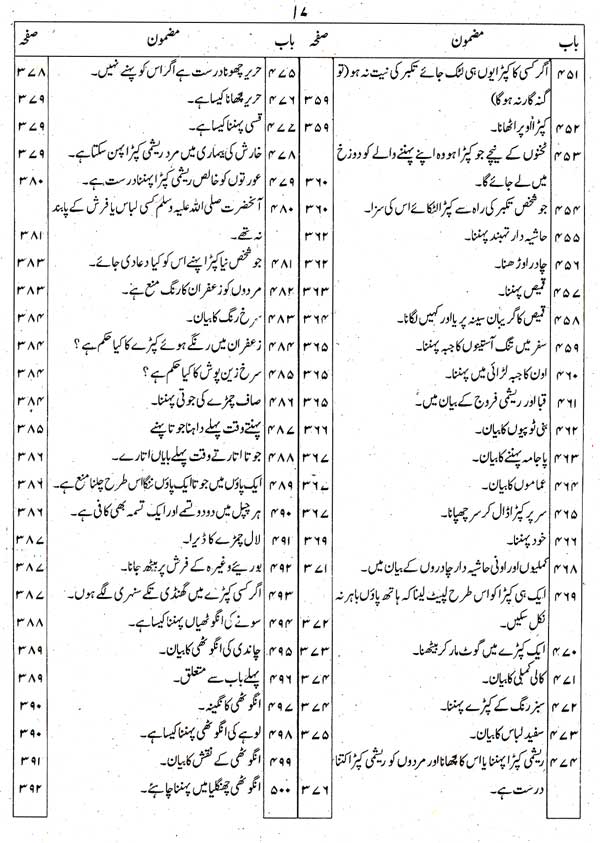 ۱۷
باب مضمون صفحہ
۴۵۱ اگر کسی کا کپڑا یوں ہی لٹک جائے تکبر کی نیت نہ ہو (تو
گنہگار نہ ہوگا) ۳۵۹
۴۵۲ کپڑا اوپر اٹھانا۔ ۳۵۹
۴۵۳ ٹخنوں کے نیچے جو کپڑا ہو وہ اپنے پہننے والے کو دوزخ
میں لے جائے گا۔ ۳۶۰
۴۵۴ جو شخص تکبر کی راہ سے کپڑا لٹکائے اس کی سزا۔ ۳۶۰
۴۵۵ حاشیہ دار تہبند پہننا۔ ۳۶۲
۴۵۶ چادر اوڑھنا۔ ۳۶۲
۴۵۷ قمیص پہننا۔ ۳۶۳
۴۵۸ قمیص کا گریبان سینہ پر یا اور کہیں لگانا۔ ۳۶۴
۴۵۹ سفر میں تنگ آستینوں کا جبہ پہننا۔ ۳۶۵
۴۶۰ اون کا جبہ لڑائی میں پہننا۔ ۳۶۵
۴۶۱ قبا اور ریشمی فروج کے بیان میں۔ ۳۶۵
۴۶۲ بنی ٹوپیوں کا بیان۔ ۳۶۶
۴۶۳ پاجامہ پہننے کا بیان۔ ۳۶۷
۴۶۴ عماموں کا بیان۔ ۳۶۷
۴۶۵ سر پر کپڑا ڈال کر سر چھپانا۔ ۳۶۷
۴۶۶ خود پہننا۔ ۳۶۹
۴۶۸ کملیوں اور اونی حاشیہ دار چادروں کے بیان میں۔ ۳۷۱
۴۶۹ ایک ہی کپڑا کو اس طرح لپیٹ لینا کہ ہاتھ پاؤں باہر نہ
نکل سکیں۔ ۳۷۲
۴۷۰ ایک کپڑے میں گوٹ مار کر بیٹھنا۔ ۳۷۳
۴۷۱ کالی کملی کا بیان۔ ۳۷۴
۴۷۲ سبز رنگ کے کپڑے پہننا۔ ۳۷۴
۴۷۳ سفید لباس کا بیان۔ ۳۷۵
۴۷۴ ریشمی کپڑا پہننا یا اس کا بچھانا اور مردوں کو ریشمی کپڑا کتنا
درست ہے۔ ۳۷۶
باب مضمون صفحہ
۴۷۵ حریر چھونا درست ہے اگر اس کو پہنے نہیں۔ ۳۷۸
۴۷۶ حریر بچھانا کیسا ہے۔ ۳۷۹
۴۷۷ قسی پہننا کیسا ہے۔ ۳۷۹
۴۷۸ خارش کی بیماری میں مرد ریشمی کپڑا پہن سکتا ہے۔ ۳۷۹
۴۷۹ عورتوں کو خالص ریشمی کپڑا پہننا درست ہے۔ ۳۸۰
۴۸۰ آنحضرت صلی اللہ علیہ وسلم کسی لباس یا فرش کے پابند
نہ تھے۔ ۳۸۱
۴۸۱ جو شخص نیا کپڑا پہنے اس کو کیا دعا دی جائے۔ ۳۸۳
۴۸۲ مردوں کو زعفران کا رنگ منع ہے۔ ۳۸۳
۴۸۳ سرخ رنگ کا بیان۔ ۳۸۴
۴۸۴ زعفران میں رنگے ہوئے کپڑے کا کیا حکم ہے؟ ۳۸۴
۴۸۵ سرخ زین پوش کا کیا حکم ہے؟ ۳۸۴
۴۸۶ صاف چمڑے کی جوتی پہننا۔ ۳۸۴
۴۸۷ پہنتے وقت پہلے داہنا جوتا پہنے ۳۸۵
۴۸۸ جوتا اتارتے وقت پہلے بایاں اتارے۔ ۳۸۶
۴۸۹ ایک پاؤں میں جوتا ایک پاؤں ننگا اس طرح چلنا منع ہے۔ ۳۸۶
۴۹۰ ہر چپل میں دو دو تسمے اور ایک تسمہ بھی کافی ہے۔ ۳۸۶
۴۹۱ لال چمڑے کا ڈیرا۔ ۳۸۷
۴۹۲ بوریے وغیرہ کے فرش پر بیٹھ جانا۔ ۳۸۷
۴۹۳ اگر کسی کپڑے میں گھنڈی تکمے سنہری لگے ہوں۔ ۳۸۷
۴۹۴ سونے کی انگوٹھیاں پہننا کیسا ہے۔ ۳۸۸
۴۹۵ چاندی کی انگوٹھی کا بیان۔ ۳۸۹
۴۹۶ پہلے باب سے متعلق۔ ۳۸۹
۴۹۷ انگوٹھی کا نگینہ۔ ۳۹۰
۴۹۸ لوہے کی انگوٹھی پہننا کیسا ہے۔ ۳۹۰
۴۹۹ انگوٹھی کے نقش کا بیان۔ ۳۹۱
۵۰۰ انگوٹھی چھنگلیا میں پہننا چاہئے۔ ۳۹۲